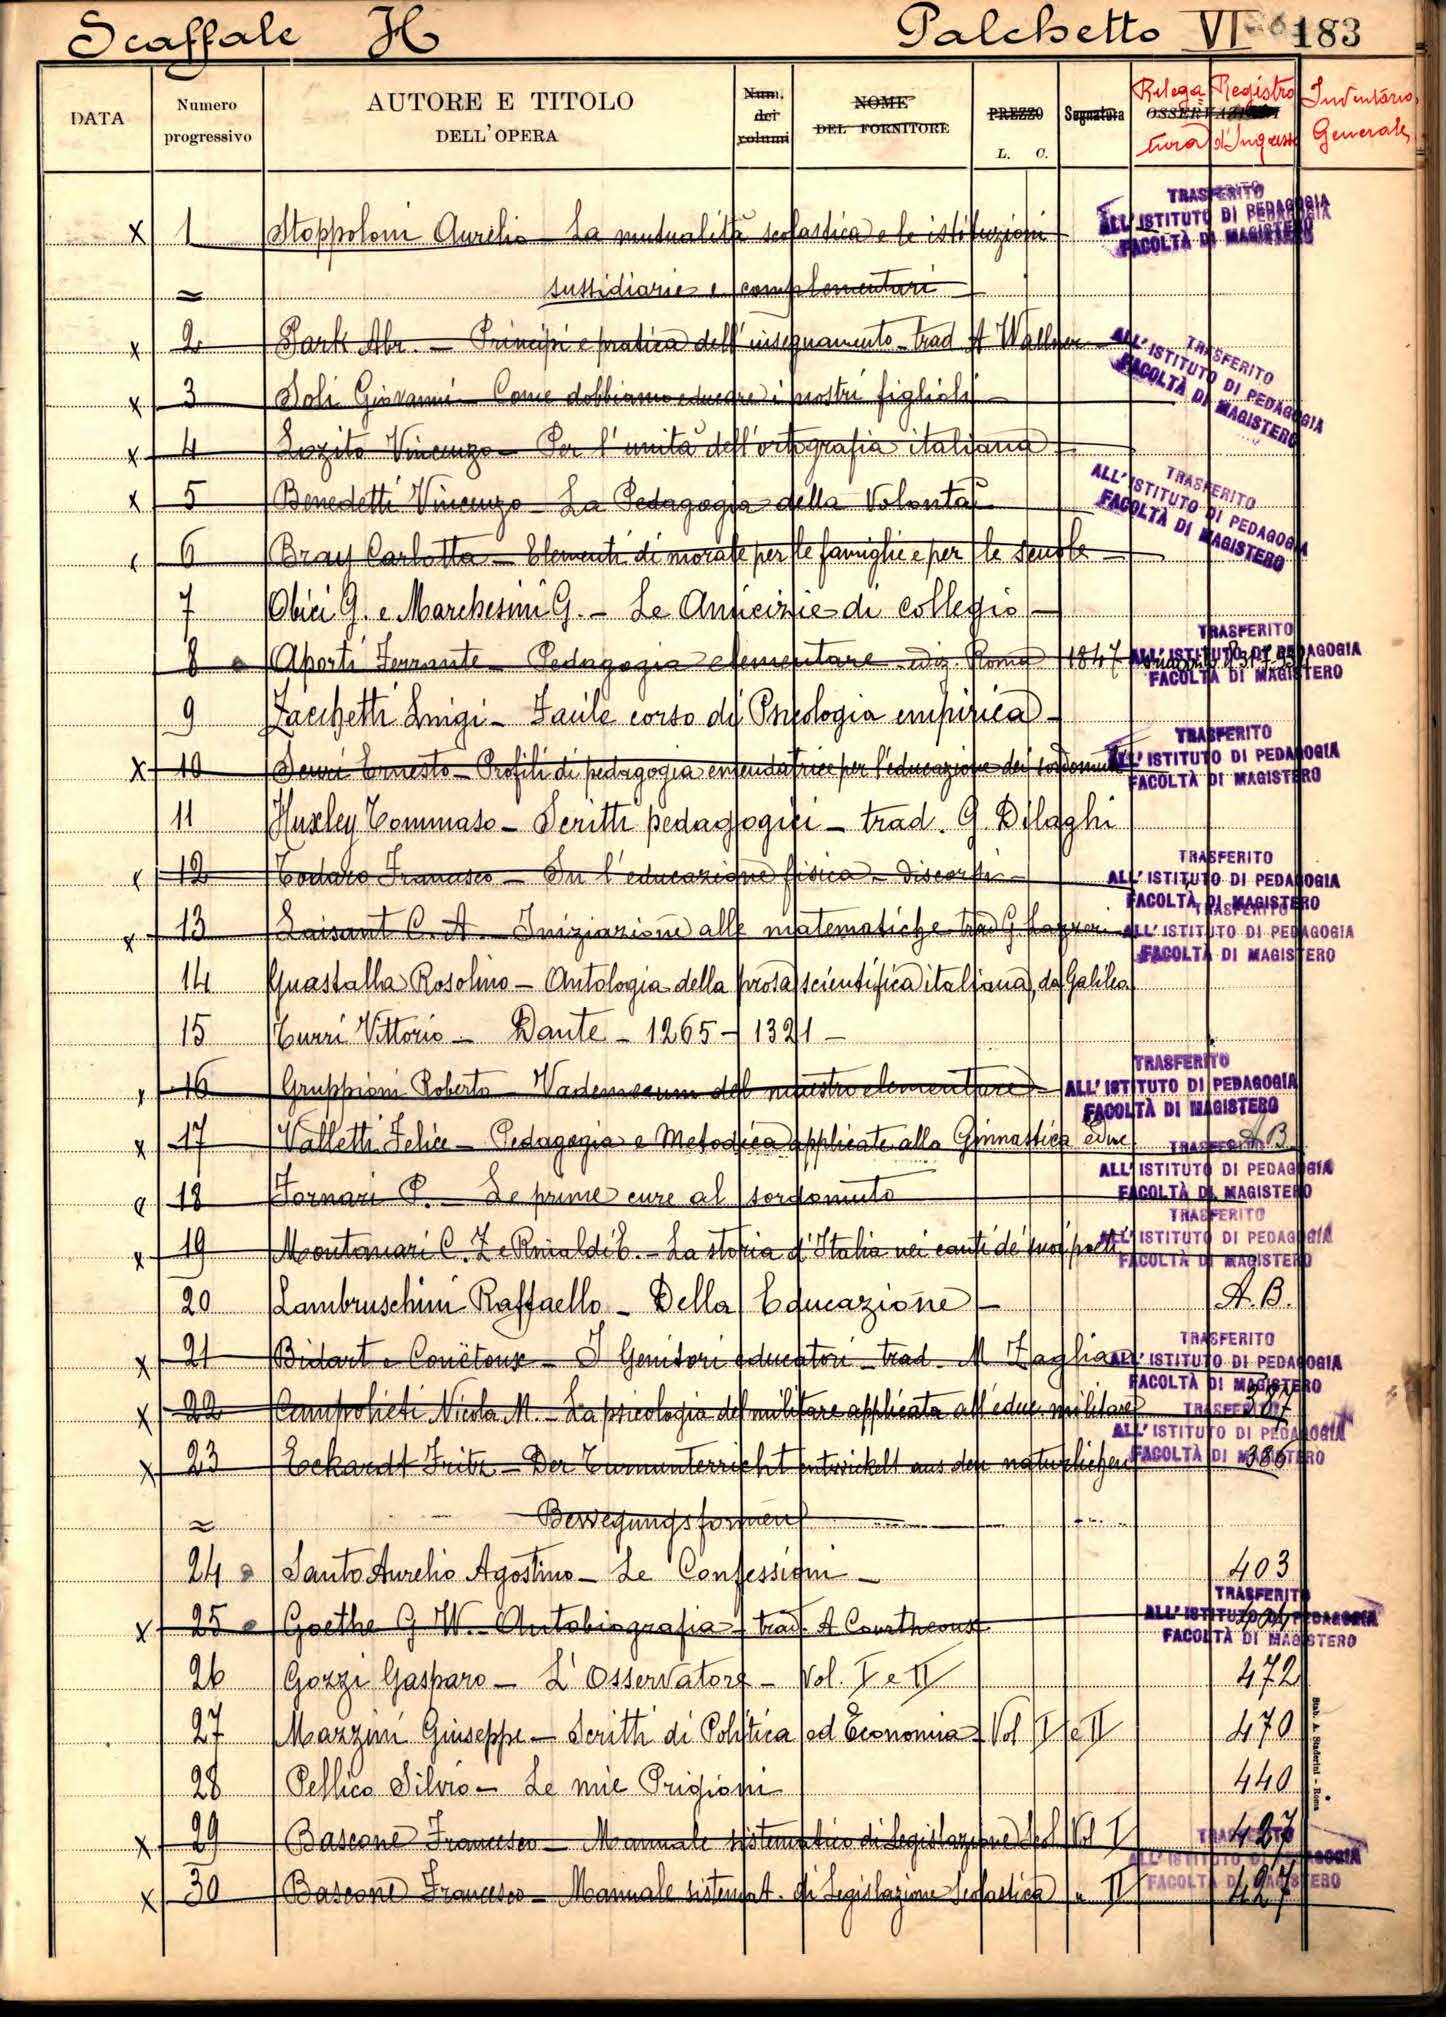 Scaffale H Palchetto VI 183
DATA Numero progressivo AUTORE E TITOLO DELL'OPERA Num. dei volumi NOME DEL FORNITORE PREZZO L. C. Segnatura OSSERVAZIONI Rilegatura Registro d'Ingresso Inventario Generale
x 1 Stoppoloni Aurelio - La mutualità scolastica e le istituzioni TRASFERITO ALL'ISTITUTO DI PEDAGOGIA FACOLTÀ DI MAGISTERO
= sussidiarie e complementari
x 2 Park Abr. - Principi e pratica dell'insegnamento - trad A Wallner - TRASFERITO ALL'ISTITUTO DI PEDAGOGIA FACOLTÀ DI MAGISTERO
x 3 Soli Giovanni - Come dobbiamo educare i nostri figlioli -
x 4 Lozito Vincenzo - Per l'unità dell'ortografia italiana -
x 5 Benedetti Vincenzo - La Pedagogia della Volontà - TRASFERITO ALL'ISTITUTO DI PEDAGOGIA FACOLTÀ DI MAGISTERO
6 Bray Carlotta - Elementi di morale per le famiglie e per le scuole -
7 Obici G. e Marchesini G. - Le Amicizie di collegio -
8 Aporti Ferrante - Pedagogia elementare - ediz. Roma 1847 TRASFERITO ALL'ISTITUTO DI PEDAGOGIA FACOLTÀ DI MAGISTERO
9 Zacchetti Luigi - Facile corso di Psicologia empirica -
x 10 Scuri Ernesto - Profili di pedagogia emendatrice per l'educazione dei sordomuti TRASFERITO ALL'ISTITUTO DI PEDAGOGIA FACOLTÀ DI MAGISTERO
11 Huxley Tommaso - Scritti pedagogici - trad. G. Dilaghi
12 Todaro Francesco - Su l'educazione fisica - discorsi - TRASFERITO ALL'ISTITUTO DI PEDAGOGIA FACOLTÀ DI MAGISTERO
x 13 Laisant C. A. - Iniziazione alle matematiche trad G Lazzeri - TRASFERITO ALL'ISTITUTO DI PEDAGOGIA FACOLTÀ DI MAGISTERO
14 Guastalla Rosolino - Antologia della prosa scientifica italiana, da Galileo
15 Turri Vittorio - Dante - 1265 - 1321 -
16 Gruppioni Roberto - Vademecum del maestro elementare - TRASFERITO ALL'ISTITUTO DI PEDAGOGIA FACOLTÀ DI MAGISTERO
x 17 Valletti Felice - Pedagogia e Metodica applicate alla Ginnastica educ. A B. TRASFERITO ALL'ISTITUTO DI PEDAGOGIA FACOLTÀ DI MAGISTERO
18 Fornari P. - Le prime cure al sordomuto
x 19 Montanari C. Z e Rinaldi E. - La storia d'Italia nei canti de' suoi poeti TRASFERITO ALL'ISTITUTO DI PEDAGOGIA FACOLTÀ DI MAGISTERO
20 Lambruschini Raffaello - Della Educazione - A. B.
x 21 Bidart e Conëtoux - I Genitori educatori - trad. M Zaglia TRASFERITO ALL'ISTITUTO DI PEDAGOGIA FACOLTÀ DI MAGISTERO
x 22 Campolieti Nicola M. - La psicologia del militare applicata all'educ. militare 387 TRASFERITO ALL'ISTITUTO DI PEDAGOGIA FACOLTÀ DI MAGISTERO
x 23 Eckardt Fritz - Der Turnunterricht entwickelt aus den naturlichen 386
= Bewegungsformen
24 Santo Aurelio Agostino - Le Confessioni - 403
x 25 Goethe G W. - Autobiografia - trad. A Courtheoux TRASFERITO ALL'ISTITUTO DI PEDAGOGIA FACOLTÀ DI MAGISTERO
26 Gozzi Gasparo - L'Osservatore - Vol. I e II 472
27 Mazzini Giuseppe - Scritti di Politica ed Economia - Vol I e II 470
28 Pellico Silvio - Le mie Prigioni 440
x 29 Bascone Francesco - Manuale sistematico di Legislazione Scol Vol I 427 TRASFERITO ALL'ISTITUTO DI PEDAGOGIA FACOLTÀ DI MAGISTERO
x 30 Bascone Francesco - Manuale sistemat. di Legislazione Scolastica " II 427
Stab. A. Staderini - Roma